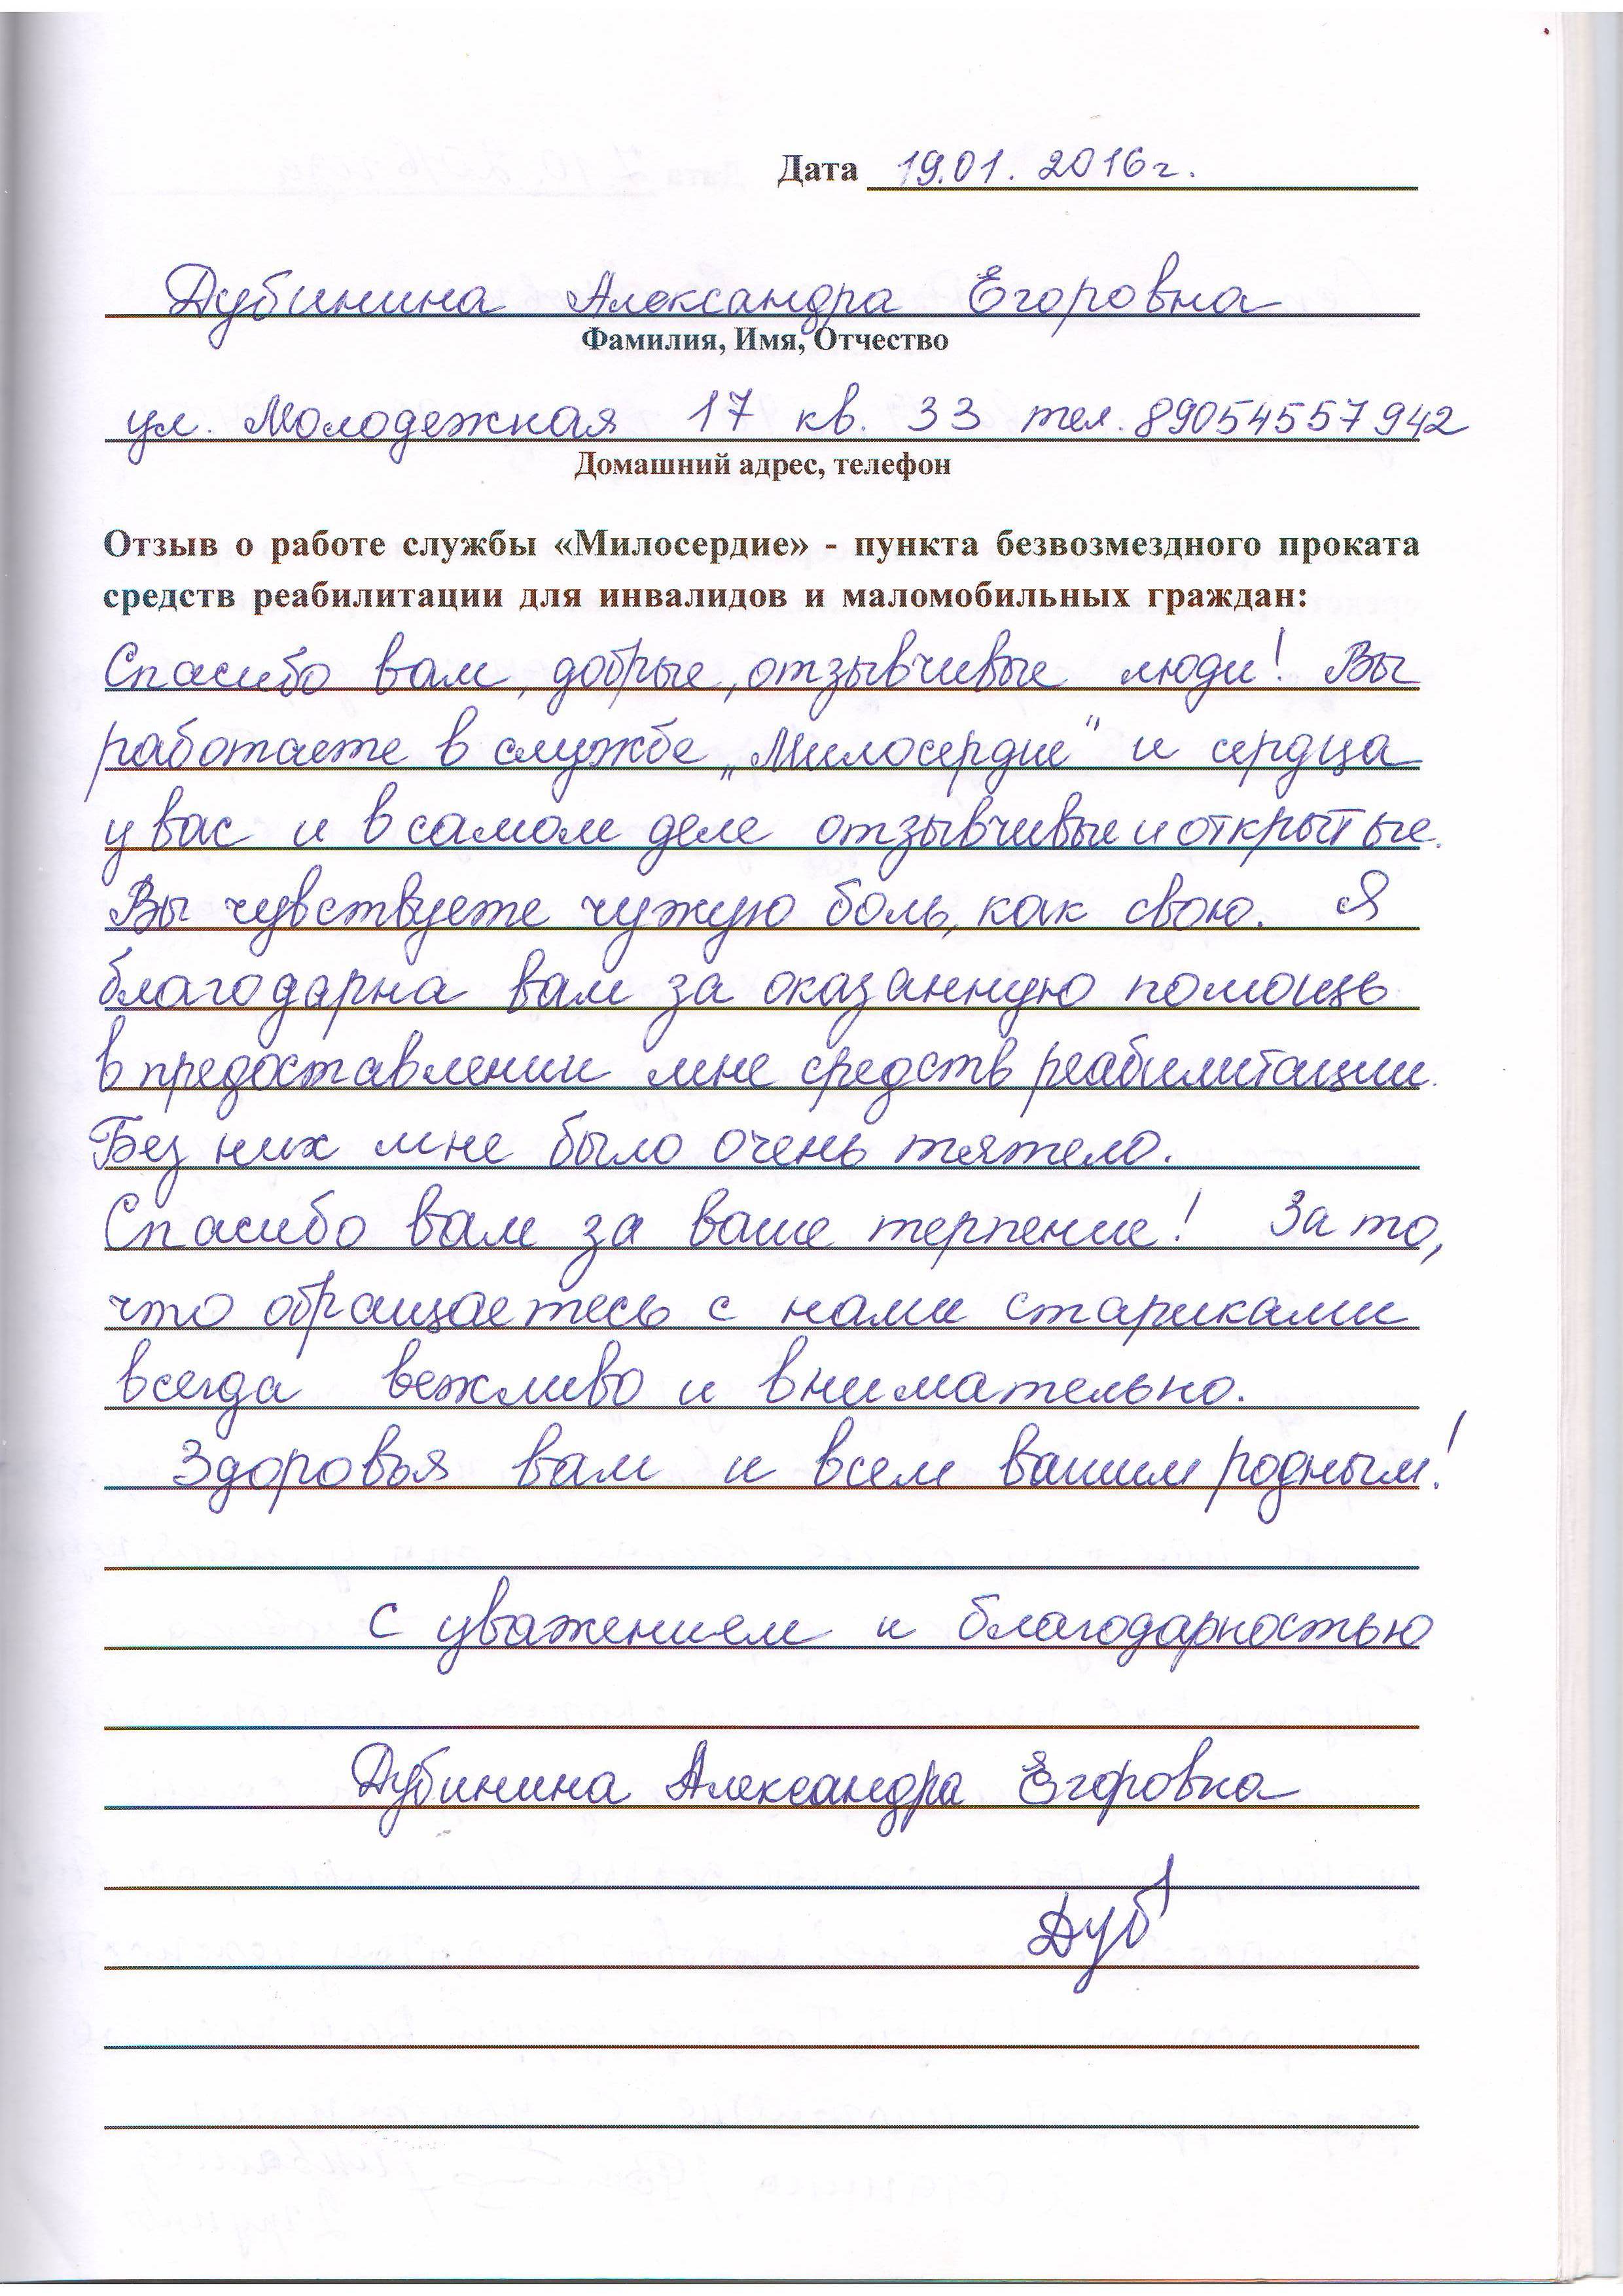 Дата 19.01.2016г.
Дубинина Александра Егоровна
Фамилия, Имя, Отчество
ул. Молодежная 17 кв. 33 тел. 89054557942
Домашний адрес, телефон
Отзыв о работе службы «Милосердие» - пункта безвозмездного проката
средств реабилитации для инвалидов и маломобильных граждан:
Спасибо вам, добрые, отзывчивые люди! Вы
работаете в службе „Милосердие" и сердца
у вас и в самом деле отзывчивые и открытые.
Вы чувствуете чужую боль, как свою. Я
благодарна вам за оказанную помощь
в предоставлении мне средств реабилитации.
Без них мне было очень тяжело.
Спасибо вам за ваше терпение! За то,
что обращаетесь с нами стариками
всегда вежливо и внимательно.
Здоровья вам и всем вашим родным!
С уважением и благодарностью
Дубинина Александра Егоровна
Дуб